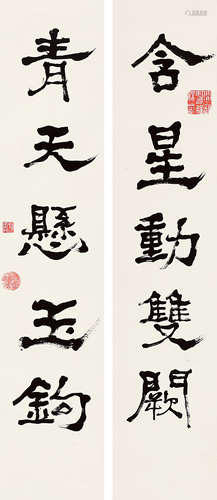 含星動雙闕
青天懸玉鉤